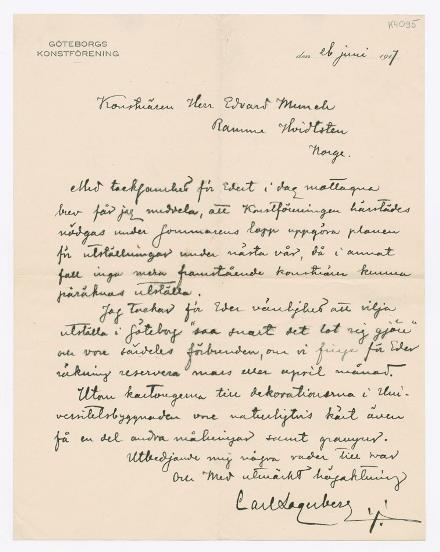 K4095
GÖTEBORGS
KONSTFÖRENING
den 26 juni 1917
Konstnären Herr Edvard Munch
Ramme Hvidtsten
Norge.
Med tacksamhet för Edert i dag mottagna
bref får jag meddela, att Konstföreningen härstädes
nödgas under sommarens lopp uppgöra planen
för utställningar under nästa vår, då i annat
fall inga mera framstående konstnärer kunna
påräknas utställa.
Jag tackar för Eder vänlighet att vilja
utställa i Göteborg "saa snart det lot sig gjöre"
och vore särdeles förbunden, om vi finge för Eder
räkning reservera mars eller april månad.
Utom kartongerna till dekorationerna i Uni-
versitetsbyggnaden vore naturligtvis kärt även
få en del andra målningar samt gravyrer.
Utbedjande mig några rader till svar
och Med utmärkt högaktning
Carl Lagerberg